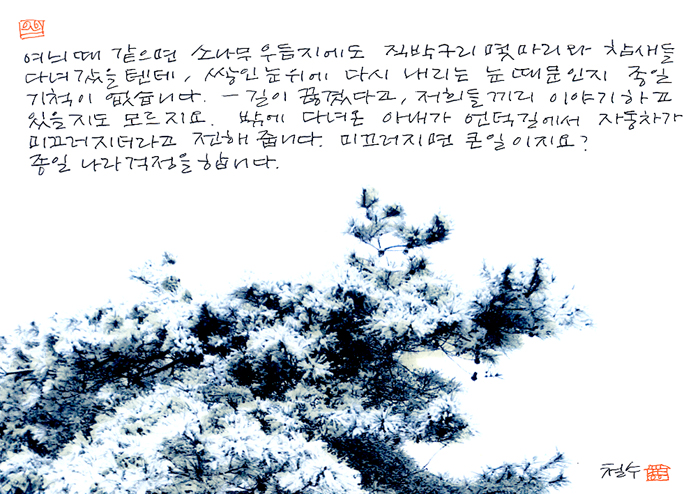 여늬때 같으면 소나무 우듬지에도 직박구리 몇마리와 참새들
다녀갔을텐데, 쌓인눈위에 다시 내리는 눈때문인지 종일
기척이 없습니다. —길이 끊겼다고, 저희들끼리 이야기하고
있을지도 모르지요. 밖에 다녀온 아내가 언덕길에서 자동차가
미끄러지더라고 전해 줍니다. 미끄러지면 큰일이지요?
종일 나라걱정을 합니다.
철수